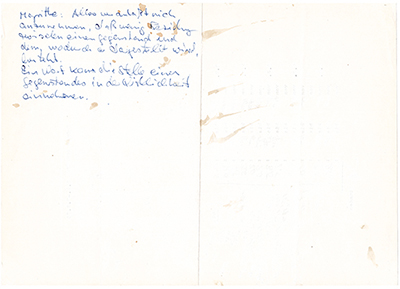 Magritte: Alles und daß sich
annehmen, daß wenig Beziehung
zwischen einem Gegenstand und
dem, wodurch er dargestellt wird,
besteht.
Ein Wort kann die Stelle eines
Gegenstandes in der Wirklichkeit
einnehmen.